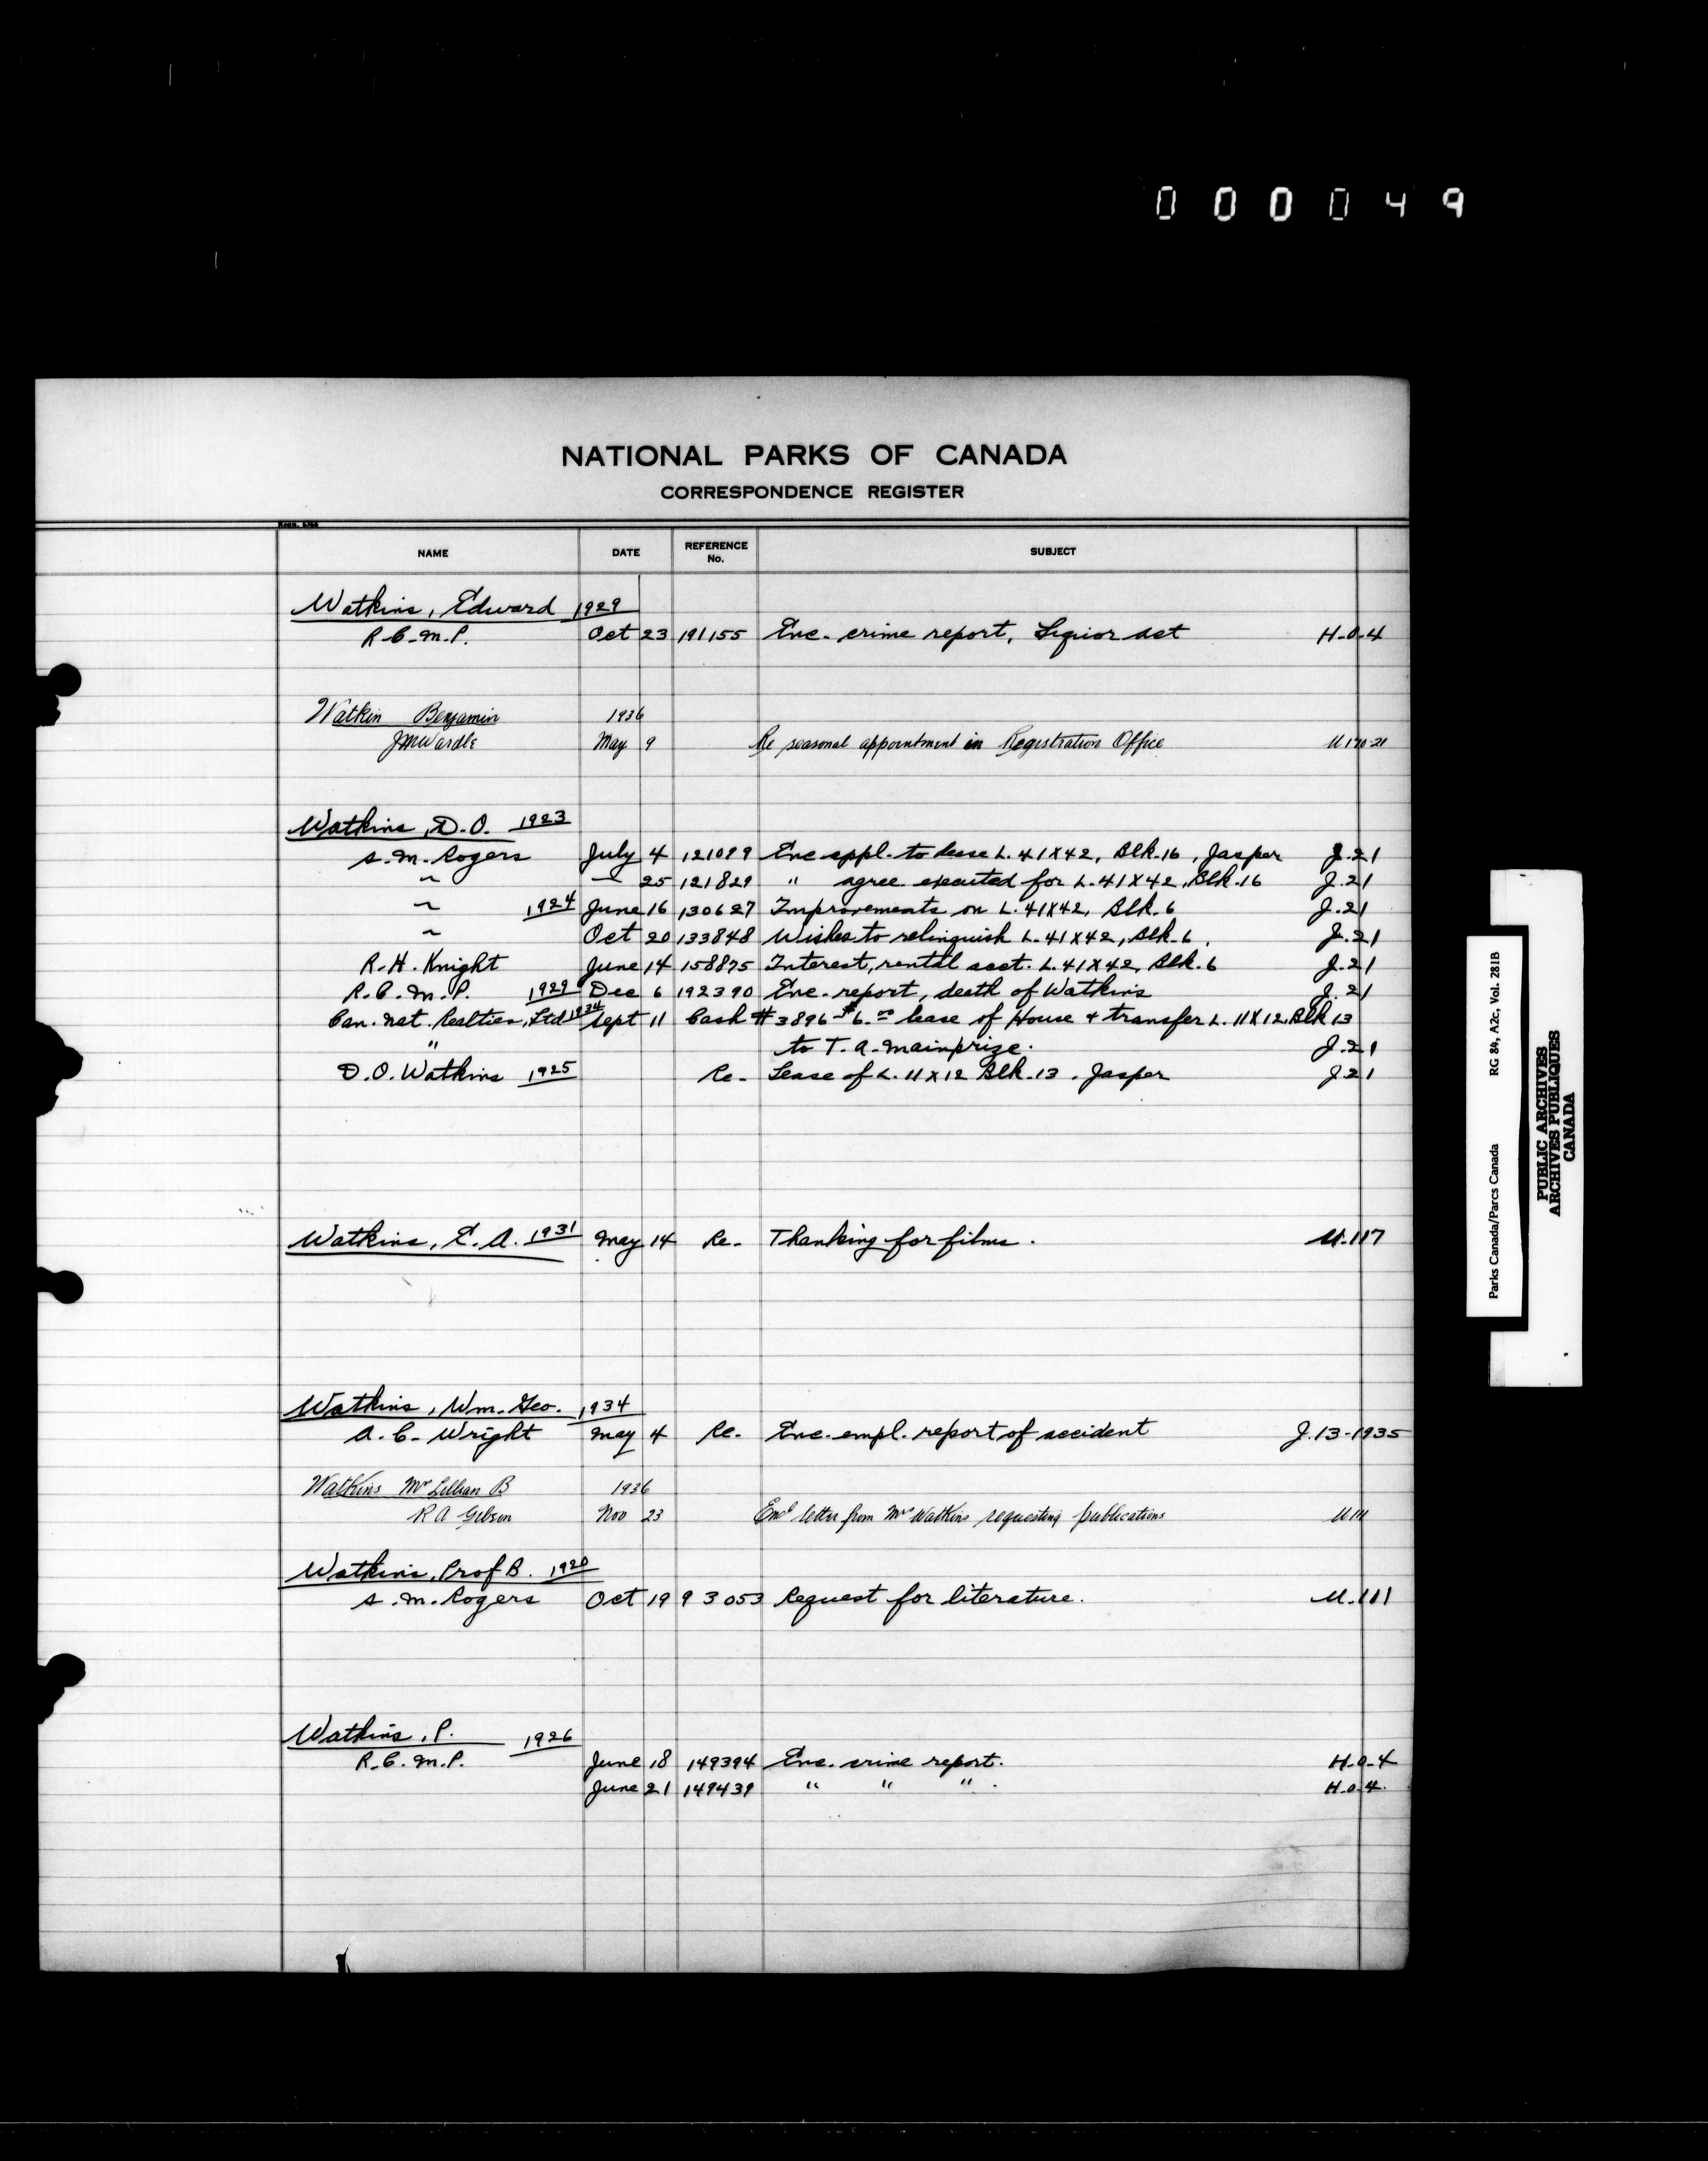 000049
NATIONAL PARKS OF CANADA
CORRESPONDENCE REGISTER
NAME DATE REFERENCE No. SUBJECT
Watkins, Edward 1929
R.C.M.P. Oct 23 191155 Enc. crime report, Liquior Act H-0-4
Watkin Benjamin 1936
JMWardle May 9 Re seasonal appointment in Registration Office U170-21
Watkins, D.O. 1923
S.M. Rogers July 4 121089 Enc appl. to lease L. 41X42, Blk.16, Jasper J.21
~ — 25 121829 " agree executed for L.41X42, Blk.16 J.21
~ 1924 June 16 130627 Improvements on L.41X42, Blk.6 J.21
~ Oct 20 133848 Wishes to relinquish L.41X42, Blk.6. J.21
R.H. Knight June 14 158875 Interest, rental acct. L.41X42, Blk.6 J.21
R.C.M.P. 1929 Dec 6 192390 Enc. report, death of Watkins J.21
Can. Nat. Realties, Ltd 1934 Sept 11 Cash #3896 $6.00 lease of House & transfer L.11X12, Blk 13
" to T.A. Mainprize. J.21
D.O. Watkins 1925 Re- Lease of L.11X12 Blk.13. Jasper J.21
Watkins, E.A. 1931 May 14 Re- Thanking for films. U.117
Watkins, Wm. Geo. 1934
A.C. Wright May 4 Re. Enc. empl. report of accident J.13-1935
Watkins Mrs Lillian B 1936
R A Gibson Nov 23 Encl letter from Mrs Watkins requesting publications U111
Watkins, Prof B. 1920
S.M. Rogers Oct 19 93053 Request for literature. U.111
Watkins, P. 1926
R.C.M.P. June 18 149394 Enc. crime report. H.0.4
June 21 149439 " " ". H.0.4.
Parks Canada/Parcs Canada RG 84, A2c, Vol. 281B
PUBLIC ARCHIVES
ARCHIVES PUBLIQUES
CANADA